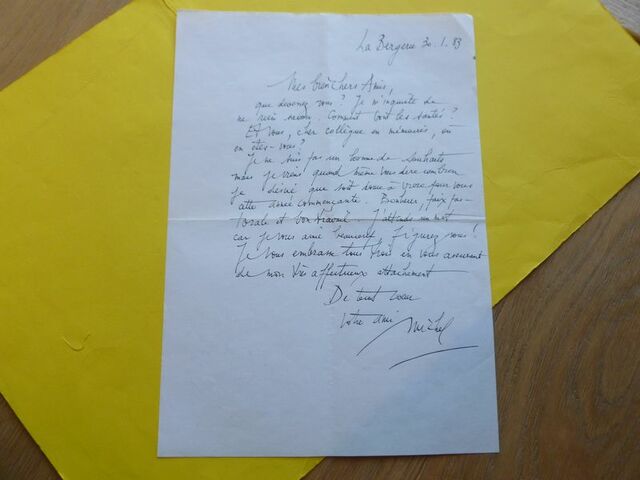 La Bergerie 30.1.83
Mes bien chers Amis,
que devenez vous ? Je m'inquiète de
ne rien savoir. Comment vont les santés ?
Et vous, cher collègue en mémoires, où
en êtes-vous ?
Je ne suis pas un homme de souhaits
mais je viens quand même vous dire combien
je désire que soit douce à vivre pour vous
cette année commençante. Bonheur, paix
et bon travail. J'attends un mot
car je vous aime beaucoup, figurez vous !
Je vous embrasse tous trois en vous assurant
de mon très affectueux attachement
De tout coeur
Votre ami Michel